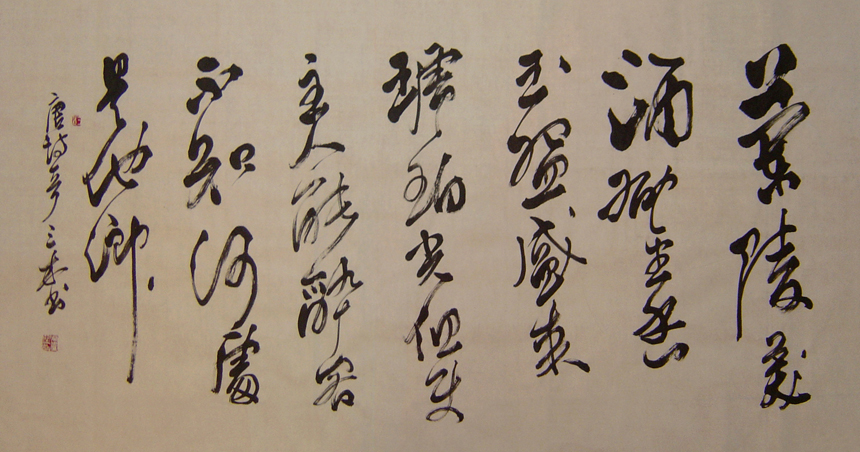 蘭陵美
酒鬱金香
玉盌盛來
琥珀光但使
主人能醉客
不知何處
是他鄉
唐詩